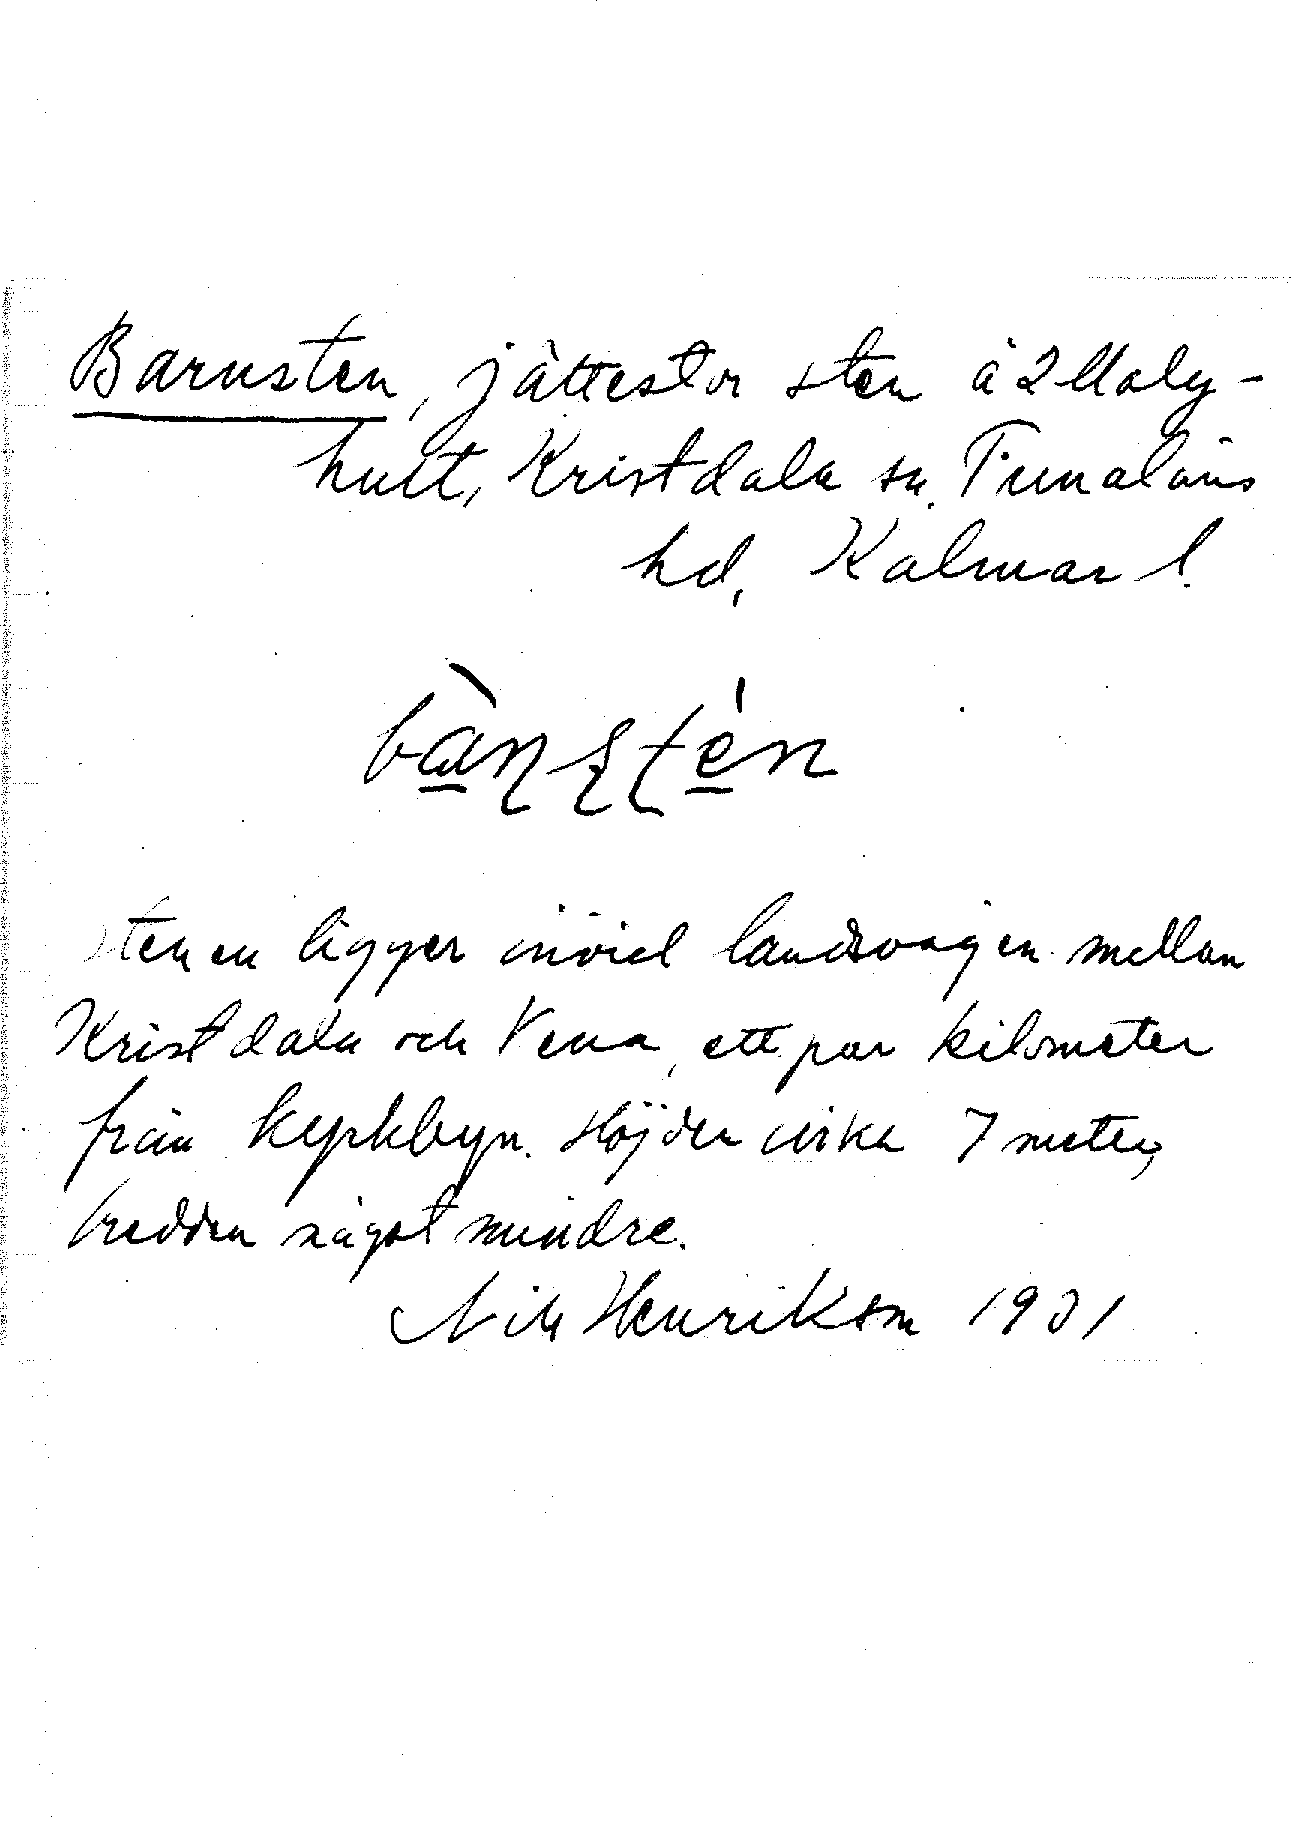 Barnsten, jättestor sten å 2 Maly-
hult, Kristdala sn. Tunaläns
hd, Kalmar l.
Stenen ligger invid landsvägen mellan
Kristdala och Vena, ett par kilometer
från kyrkbyn. Höjden cirka 7 meter,
bredden något mindre.
Nils Henrikson 1931